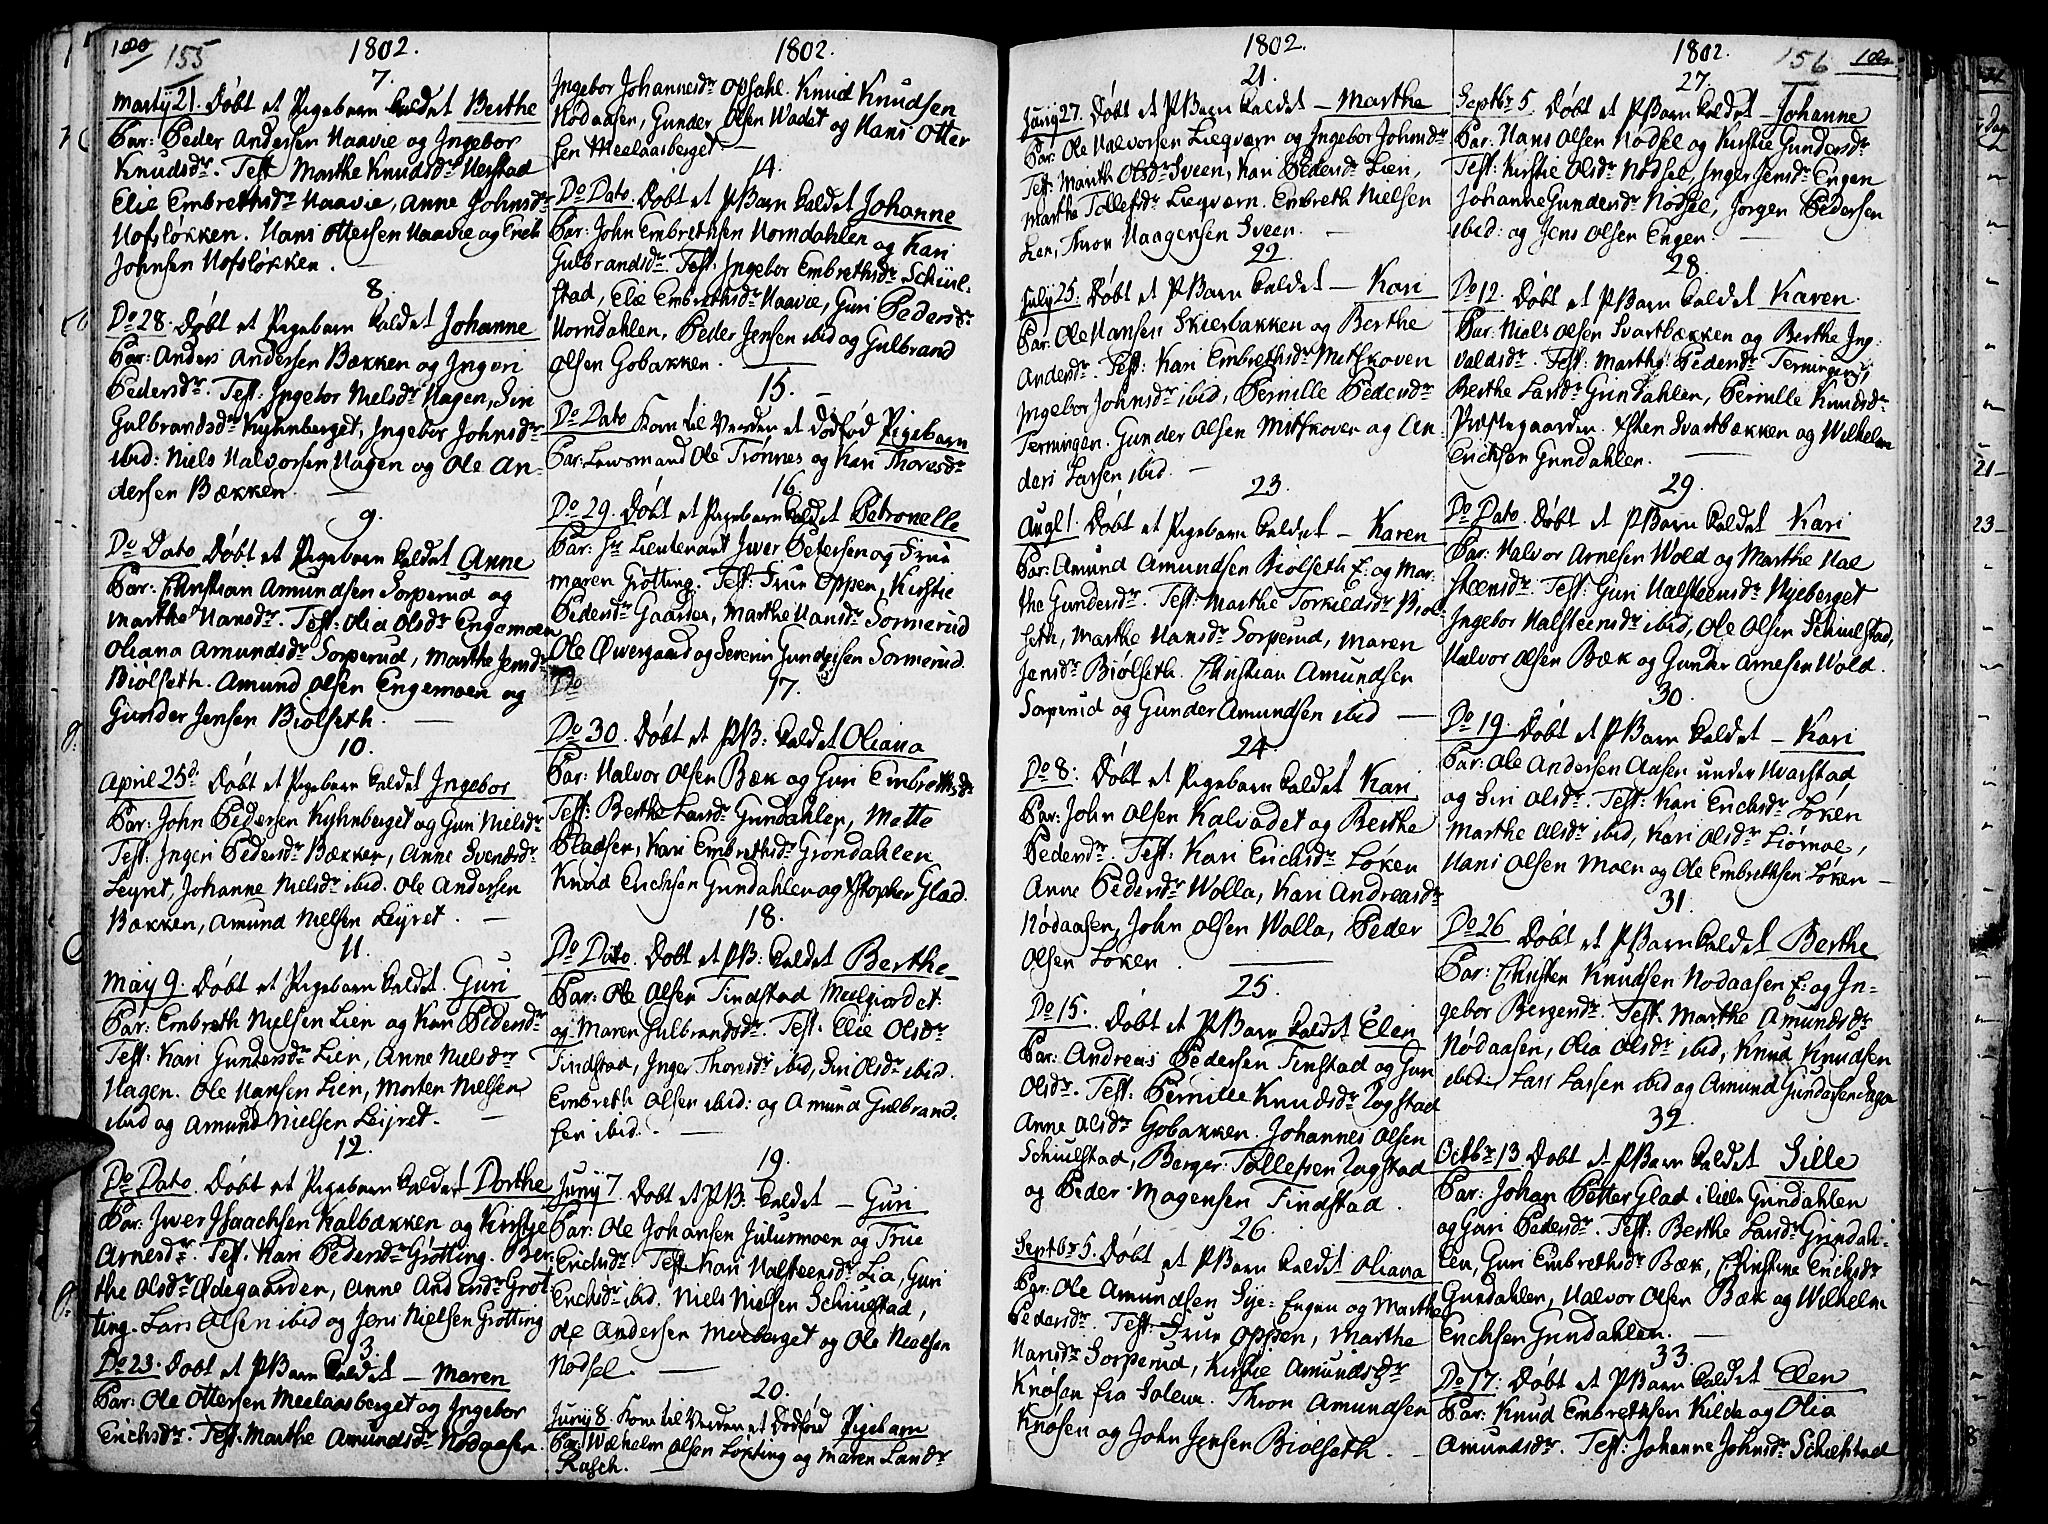 155
1802.
7.
Marty 21. Døbt et Pigebarn kaldet Berthe
Par: Peder Andersen Haavie og Ingebor
Knudsdr. Test Marthe Knudsdr Harstad
Elie Embrethsdr Haavie, Anne Johnsdr
Hofsløkken. Hans Ottersen Haavie og Erich
Johnsen Hofsløkken.
8.
Do 28. Døbt et Pigebarn kaldet Johanne
Par: Anders Andersen Bækken og Ingeri
Pedersdr. Test: Ingebor Nielsdr Hagen, Siri
Gulbrandsdr Kyhnberget, Ingebor Johnsdr
ibid: Niels Halvorsen Hagen og Ole An-
dersen Bækken.
9.
Do Dato Døbt et Pigebarn kaldet Anne
Par: Christian Amundsen Sorperud og
Marthe Hansdr. Test: Olia Olsdr Engemoen
Oliana Amundsdr Sorperud, Marthe Jensdr
Biølseth. Amund Olsen Engemoen og
Gunder Jensen Biølseth.
10.
April 25d. Døbt et Pigebarn kaldet Ingebor
Par: John Pedersen Kyhnberget og Guri Nielsdr
Test: Ingeri Pedersdr Bækken, Anne Svendsdr
Leyret, Johanne Nielsdr ibid. Ole Andersen
Bækken, Amund Nielsen Leyret.
11.
May 9. Døbt et Pigebarn kaldet Guri
Par: Embreth Nielsen Lien og Kari Pedersdr
Test: Kari Gundersdr Lien, Anne Nielsdr
Hagen. Ole Hansen Lien, Morten Nielsen
ibid og Amund Nielsen Leijret.
12.
Do Dato. Døbt et Pigebarn kaldet Dorthe
Par: Iwer Isaachsen Kalbækken og Kirstje
Arnesdr. Test. Kari Pedersdr Grøtting. Ber-
the Olsdr Ødegaarden, Anne Andersdr Grøt
ting. Lars Olsen ibid og Jens Nielsen Grøtting
3.
Do 23. Døbt et PBarn kaldet – Maren
Par: Ole Ottersen Meelaasberget og Ingebor
Erichsdr. Test: Marthe Amundsdr Nodaasen.
1802.
Ingebor Johannesdr Opsahl. Knud Knudsen
Nodaasen, Gunder Olsen Wadet og Hans Otter
sen Meelaasberget
14.
Do Dato. Døbt et PBarn kaldet Johanne
Par: John Embrethsen Horndahlen og Kari
Gulbrandsdr. Test. Ingebor Embrethsdr Schiul-
stad, Elie Embrethsdr Haavie, Guri Pedersdr
Horndahlen, Peder Jensen ibid og Gulbrand
Olsen Gobakken.
15.
Do Dato Kom til Verden et Dødfød Pigebarn
Par: Lensmand Ole Trønnes og Kari Thoresdr
16.
Do 29. Døbt et Pigebarn kaldet Petronelle
Par: Hr Lieutenant Iwer Petersen og Frue
Maren Grøtting. Test: Frue Oppen, Kirstie
Pedersdr Gaarder, Marthe Hansdr Sormerud
Ole Øwergaard og Severin Gundersen Sormerud.
Do
17.
Do 30. Døbt et PB: kaldet Oliana
Par: Halvor Olsen Bæk og Guri Embrethsdr
Test: Berthe Larsdr Gundahlen, Mette
Pladsen, Kari Embrethsdr Grøndahlen
Knud Erichsen Gundahlen og Xstopher Glad.
18.
Do Dato. Døbt et PB: kaldet Berthe
Par: Ole Olsen Tindstad Meelgiordet
og Maren Gulbrandsdr. Test: Elie Olsdr
Tindstad, Inger Thoresdr ibid, Siri Olsdr ibid.
Embreth Olsen ibid: og Amund Gulbrand-
sen ibid.
19.
Juny 7. Døbt et PB. kaldet – Guri
Par: Ole Johansen Julusmoen og True
Erichsdr. Test. Kari Halsteensdr Lia, Guri
Erichsdr ibid. Niels Nielsen Schiulstad,
Ole Andersen Moeberget og Ole Nielsen
Nodsel.
20.
Juny 8. Kom til Verden et Dødfød Pigebarn
Par: Wilhelm Olsen Løkting og Maren Landr
Rasch.
1802.
21.
Juny 27. Døbt et PBarn kaldet – Marthe
Par: Ole Halvorsen Lieqværn og Ingebor Johnsdr
Test: Marth Olsdr Sveen, Kari Pedersdr Lien,
Marthe Tollefsdr Lieqværn. Embreth Nielsen
Lien, Thron Haagensen Sveen.
22.
July 25. Døbt et PBarn kaldet – Kari
Par: Ole Hansen Skierbakken og Berthe
Andersdr. Test: Kari Embrethsdr Mitskoven
Ingebor Johnsdr ibid, Pernille Pedersdr
Terningen. Gunder Olsen Mitskoven og An-
ders Larsen ibid.
23.
Aug 1. Døbt et Pigebarn kaldet – Karen
Par: Amund Amundsen Biølseth E: og Mar-
the Gundersdr. Test: Marthe Torkildsdr Biøl-
seth, Marthe Hansdr Sorperud, Maren
Jensdr Biølseth. Christian Amundsen
Sorperud og Gunder Amundsen ibid
24.
Do 8. Døbt et Pigebarn kaldet Kari
Par: John Olsen Kalvadet og Berthe
Pedersdr. Test: Kari Erichsdr Løken
Anne Pedersdr Wolla, Kari Andreasdr
Nødaasen, John Olsen Wolla, Peder
Olsen Løken
25.
Do 15. Døbt et PBarn kaldet Elen
Par: Andreas Pedersen Tinstad og Guri
Olsdr. Test: Pernille Knudsdr Zagstad
Anne Olsdr Gobakken. Johannes Olsen
Schiulstad, Berger Tollefsen Zagstad
og Peder Mogensen Findstad.
26.
Septbr 5. Døbt et PBarn kaldet Oliana
Par: Ole Amundsen Sye: Engen og Marthe
Pedersdr. Test: Frue Oppen, Marthe
Hansdr Sorperud, Kirstie Amundsdr
Knøsen fra Soleur. Thron Amundsen
Knøsen og John Jensen Biølseth.
1802.
156
27.
Septbr 5. Døbt et PBarn kaldet Johanne
Par: Hans Olsen Nodsel og Kirstie Gundersdr
Test: Kirstie Olsdr Nodsel, Inger Jensdr Engen
Johanne Gundersdr Nodsel, Jørgen Pedersen
ibid: og Jens Olsen Engen.
28.
Do 12. Døbt et PBarn kaldet Karen.
Par: Niels Olsen Svartbækken og Berthe Ing-
valdsdr. Test: Marthe Pedersdr Terningen,
Berthe Larsdr Grindahlen, Pernille Knudsdr
Præstegaarden. Xsten Svartbækken og Wilhelm
Erichsen Gundahlen.
29.
Do Dato. Døbt et PBarn kaldet Kari
Par: Halvor Arnesen Wold og Marthe Hal
steensdr. Test: Guri Halsteensdr Nyeberget
Ingebor Halsteensdr ibid, Ole Olsen Schiulstad,
Halvor Olsen Bæk og Gunder Arnesen Wold.
30.
Do 19. Døbt et PBarn kaldet – Kari
Par: Ole Andersen Aasen under Harstad
og Siri Olsdr. Test: Kari Erichsdr Løken
Marthe Olsdr ibid, Kari Olsdr Liørmoe,
Hans Olsen Moen og Ole Embrethsen Løken
31.
Do 26 Døbt et PBarn kaldet Berthe
Par: Christen Knudsen Nodaasen E: og In-
gebor Bergersdr. Test. Marthe Amundsdr
Nødaasen, Olia Olsdr ibid, Knud Knudsen
ibid: Lars Larsen ibid og Amund Gundersen
32.
Octbr 13. Døbt et PBarn kaldet Sille
Par: Johan Petter Glad i lille Gundahlen
og Guri Pedersdr. Test: Berthe Larsdr Grindah-
len, Guri Embrethsdr Bæk, Christine Erichsdr
Gundahlen, Halvor Olsen Bæk og Wilhelm
Erichsen Gundahlen.
33.
Do 17. Døbt et PBarn kaldet Elen
Par: Knud Embrethsen Kilde og Olia
Amundsdr. Test: Johanne Johnsdr Schiulstad